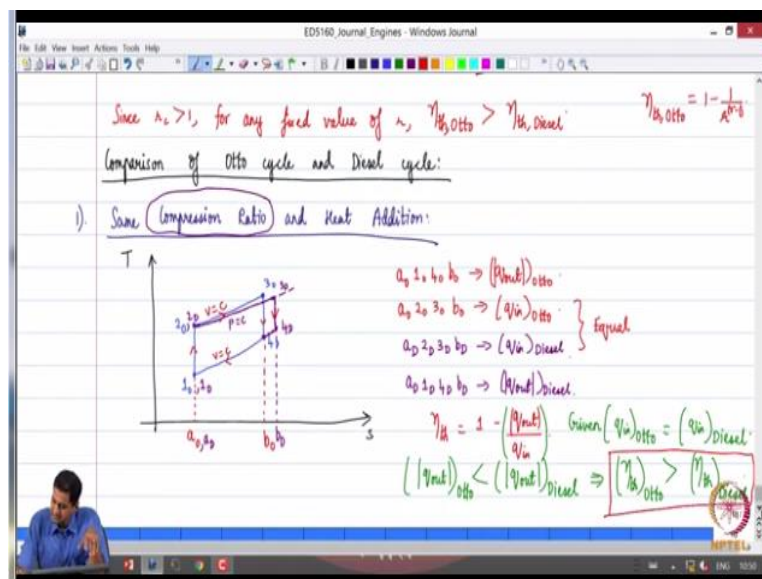 ED5160_Journal_Engines - Windows Journal
File Edit View Insert Actions Tools Help
Since r_c > 1, for any fixed value of r, η_th,Otto > η_th,Diesel.
η_th,Otto = 1 - 1/r^(γ-1)
Comparison of Otto cycle and Diesel cycle:
1). Same Compression Ratio and Heat Addition:
T
3_O 3_D
2_O 2_D v=c p=c
4_O 4_D
v=c
1_O 1_D
s
a_O, a_D b_O b_D
a_O 1_O 4_O b_O → (|q_out|)_Otto.
a_O 2_O 3_O b_O → (q_in)_Otto.
a_D 2_D 3_D b_D → (q_in)_Diesel
} Equal
a_D 1_D 4_D b_D → (|q_out|)_Diesel.
η_th = 1 - (|q_out|/q_in) Given (q_in)_Otto = (q_in)_Diesel.
(|q_out|)_Otto < (|q_out|)_Diesel ⇒ (η_th)_Otto > (η_th)_Diesel
NPTEL
ENG 10:50